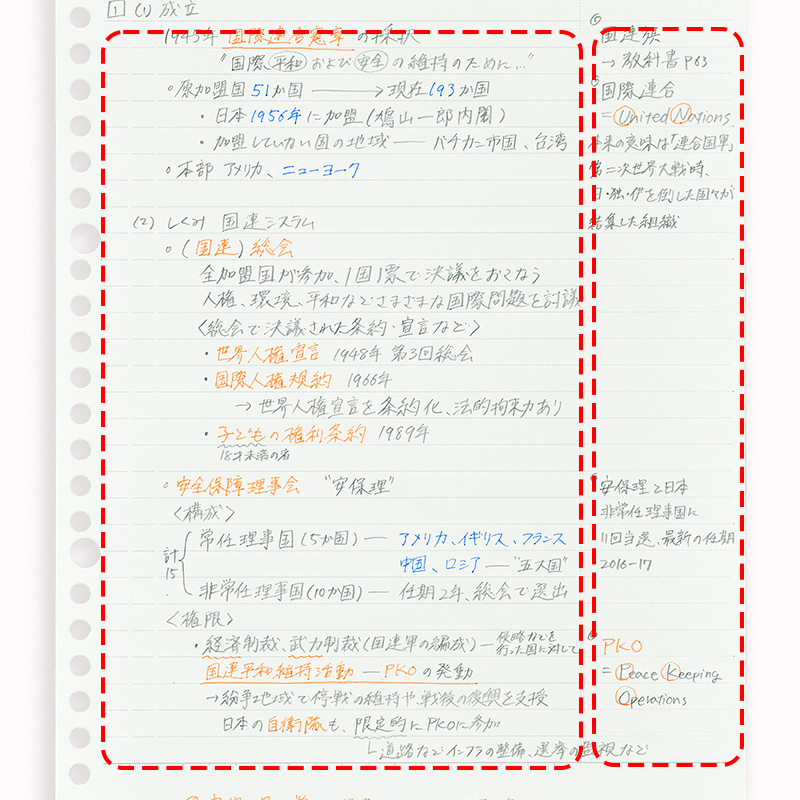 1 (1) 成立
1945年 国際連合憲章 の採択
"国際平和および安全の維持のために…"
○原加盟国51か国 → 現在193か国
・日本1956年に加盟(鳩山一郎内閣)
・加盟していない国の地域 ― バチカン市国、台湾
○本部 アメリカ、ニューヨーク
(2) しくみ 国連システム
○(国連)総会
全加盟国が参加、1国1票で決議をおこなう
人権、環境、平和などさまざまな国際問題を討議
〈総会で決議された条約・宣言など〉
・世界人権宣言 1948年 第3回総会
・国際人権規約 1966年
→世界人権宣言を条約化、法的拘束力あり
・子どもの権利条約 1989年
18才未満の者
○安全保障理事会 "安保理"
〈構成〉
計15
常任理事国(5か国) ― アメリカ、イギリス、フランス
中国、ロシア ― "五大国"
非常任理事国(10か国) ― 任期2年、総会で選出
〈権限〉
・経済制裁、武力制裁(国連軍の編成) ― 侵略などを
行った国に対して
国連平和維持活動 ― PKOの発動
→紛争地域で停戦の維持や、戦後の復興を支援
日本の自衛隊も、限定的にPKOに参加
道路などインフラの整備、選挙の監視など
国連旗
→教科書P63
国際連合
=United Nations
本来の意味は「連合国軍」
第二次世界大戦時、
日・独・伊を倒した国々が
結集した組織
安保理と日本
非常任理事国に
11回当選、最新の任期
2016-17
PKO
=Peace Keeping
Operations